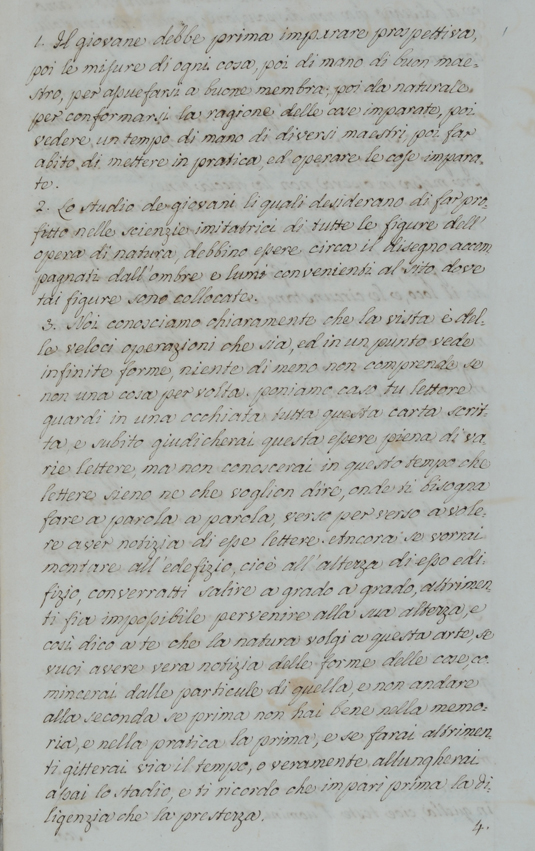 1. Il giovane debbe prima imparare prospettiva,
poi le misure di ogni cosa, poi di mano di buon mae-
stro, per assuefarsi a buone membra; poi da naturale
per conformarsi la ragione delle cose imparate, poi
vedere un tempo di mano di diversi maestri, poi far
abito di mettere in pratica, ed operare le cose impara-
te.
2. Lo studio de giovani li quali desiderano di far pro-
fitto nelle scienzie imitatrici di tutte le figure dell'
opera di natura, debbino essere circa il disegno accom
pagnati dall'ombre e lumi convenienti al sito, dove
tai figure sono collocate.
3. Noi conosciamo chiaramente che la vista è del-
le veloci operazioni che sia, ed in un punto vede
infinite forme, niente di meno non comprende se
non una cosa per volta. poniamo caso tu lettore
guardi in una occhiata tutta questa carta scrit-
ta, e subito giudicherai questa essere piena di va
rie lettere, ma non conoscerai in questo tempo che
lettere sieno ne che voglion dire, onde ti bisogna
fare a parola a parola, verso per verso a vole-
re aver notizia di esse lettere. Ancora se vorrai
montare all'edefizio, cioè all'altezza di esso edi-
fizio, converratti salire a grado a grado, altrimen
ti fia impossibile pervenire alla sua altezza, e
così dico a te che la natura volgi a questa arte, se
vuoi avere vera notizia delle forme delle cose, co
mincerai dalle particule di quella, e non andare
alla seconda se prima non hai bene nella memo-
ria, e nella pratica la prima, e se farai altrimen-
ti gitterai via il tempo, o veramente allungherai
assai lo stadio, e ti ricordo che impari prima la di-
ligenzia che la prestezza.
4.